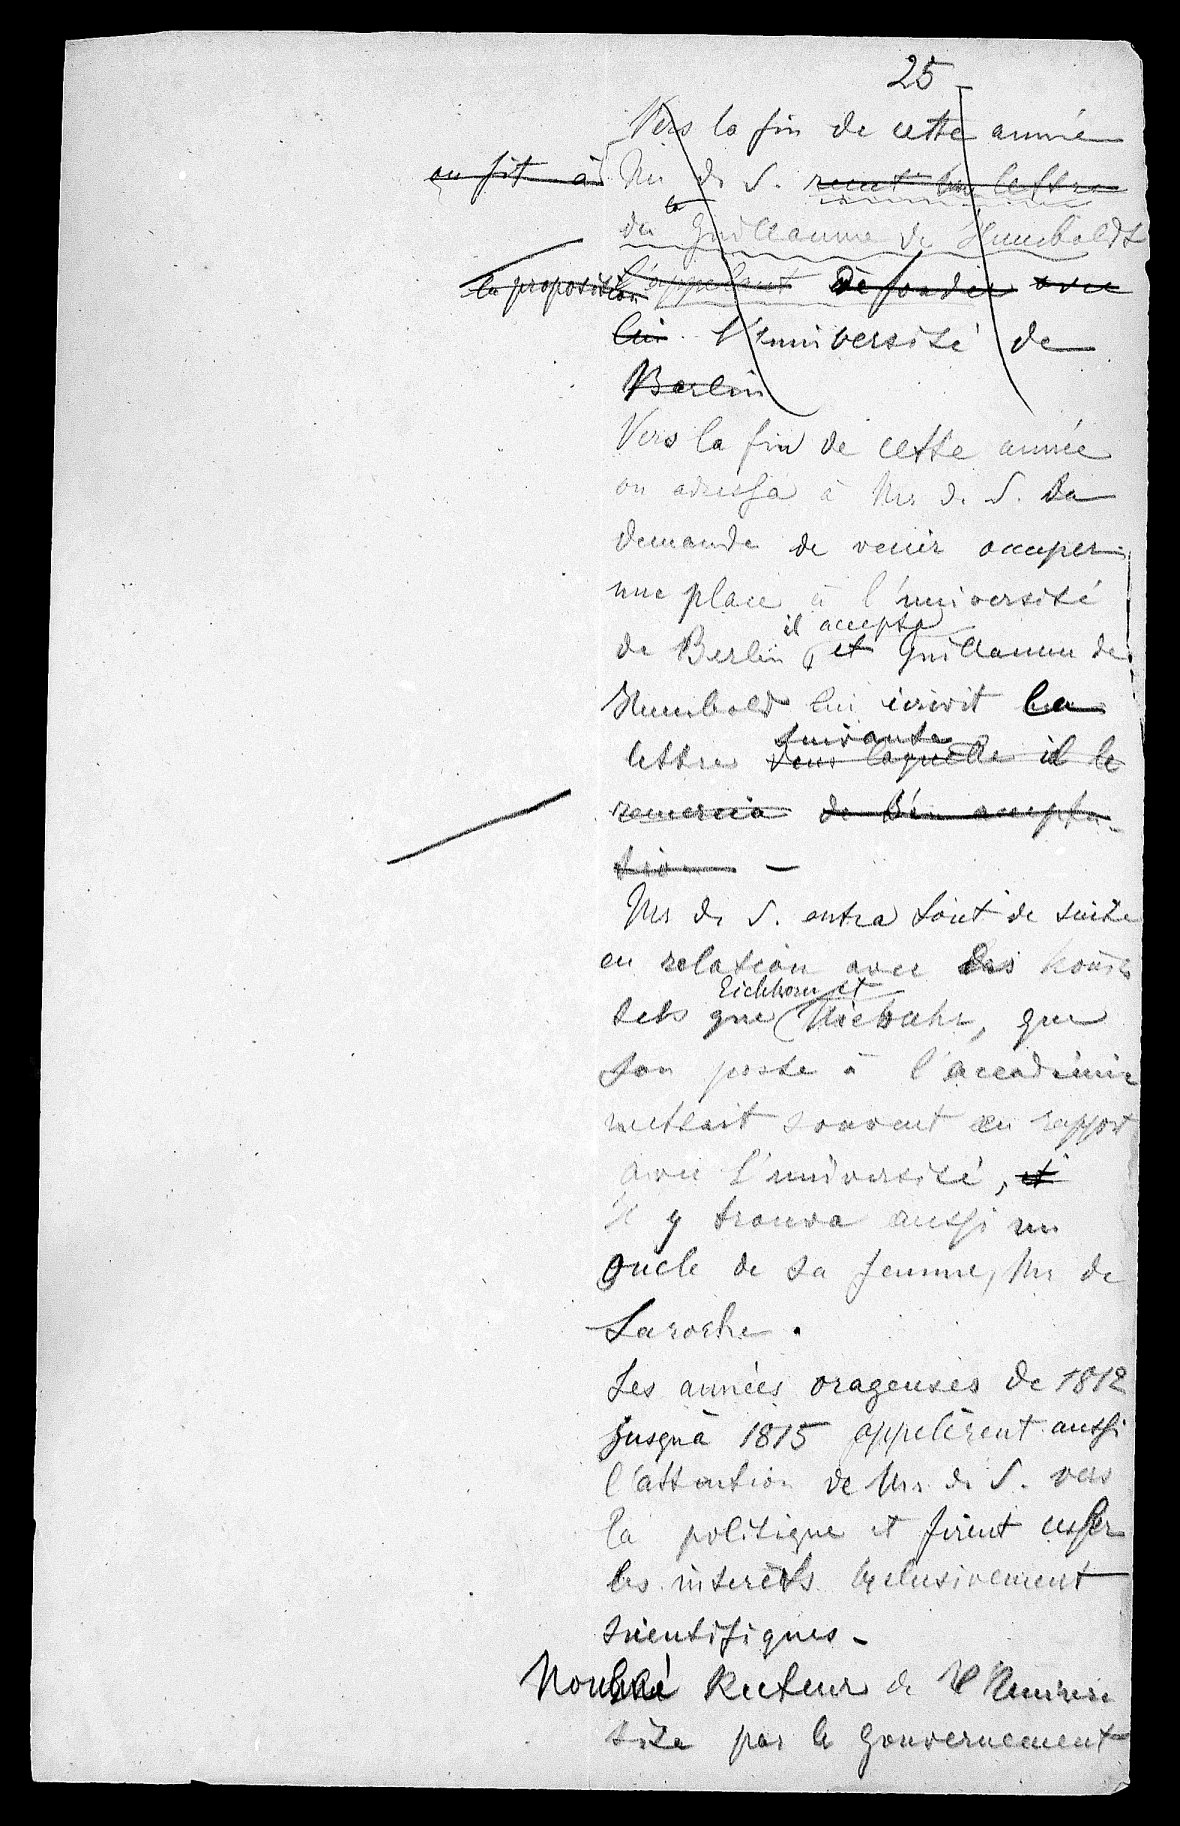 25
Vers la fin de cette année
on fit à Mr d. S. reçut une lettre
de Guillaume de Humboldt
la proposition l'appelant de fonder avec
lui l'université de
Berlin
Vers la fin de cette année
on adressa à Mr d. S. la
demande de venir occuper
une place à l'université
il accepta
de Berlin, et Guillaume de
Humbold lui écrivit la
suivante
lettre dans laquelle il le
remercia de son accepta-
tion –
Mr d. S. entra tout de suite
en relation avec des
Eichhorn et
tels que Niebuhr, que
son poste à l'accadémie
mettait souvent en rapport
avec l'université, et
il y trouva aussi un
oncle de sa femme, Mr de
Laroche.
Les années orageuses de 1812
jusqu'à 1815 appelèrent aussi
l'attention de Mr d. S. vers
la politique et firent cesser
les interêts exclusivement
scientifiques –
Nommé Recteur de l'Univer
sité par le Gouvernement